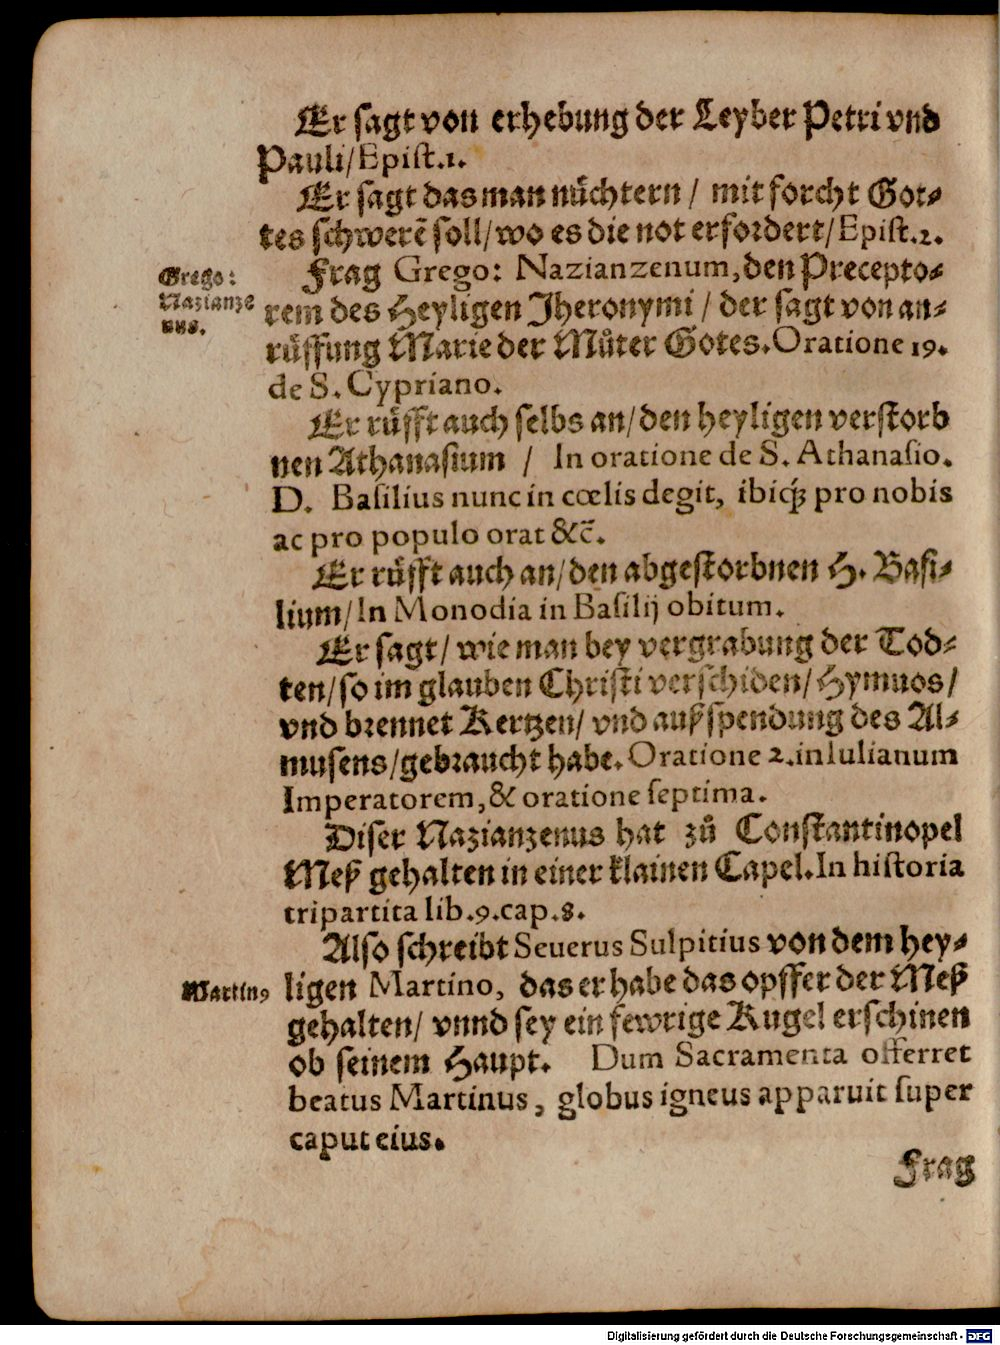 Er sagt von erhebung der Leyber Petri vnd
Pauli/Epist.1.
Er sagt das man nüchtern / mit forcht Got⸗
tes schwerē soll/wo es die not erfordert/Epist.2.
Grego:
Nazianze
nus.
Frag Grego: Nazianzenum, den Precepto⸗
rem des Heyligen Jheronymi / der sagt von an⸗
rüffung Marie der Můter Gotes. Oratione 19.
de S. Cypriano.
Er rüfft auch selbs an/den heyligen verstorb
nen Athanasium / In oratione de S. Athanasio.
D. Basilius nunc in cœlis degit, ibiq́ꝫ pro nobis
ac pro populo orat &c̃.
Er rüfft auch an/den abgestorbnen H. Basi⸗
lium/In Monodia in Basilij obitum.
Er sagt/ wie man bey vergrabung der Tod⸗
ten/so im glauben Christi verschiden/Hymnos/
vnd brennet Kertzen/ vnd außspendung des Al⸗
musens/gebraucht habe. Oratione 2. in Iulianum
Imperatorem, & oratione septima.
Diser Nazianzenus hat zů Constantinopel
Meß gehalten in einer klainen Capel. In historia
tripartita lib.9.cap.8.
Also schreibt Seuerus Sulpitius von dem hey⸗
Martinꝰ
ligen Martino, das er habe das opffer der Meß
gehalten/ vnnd sey ein fewrige Kugel erschinen
ob seinem Haupt. Dum Sacramenta offerret
beatus Martinus, globus igneus apparuit super
caput eius.
Frag
Digitalisierung gefördert durch die Deutsche Forschungsgemeinschaft - DFG